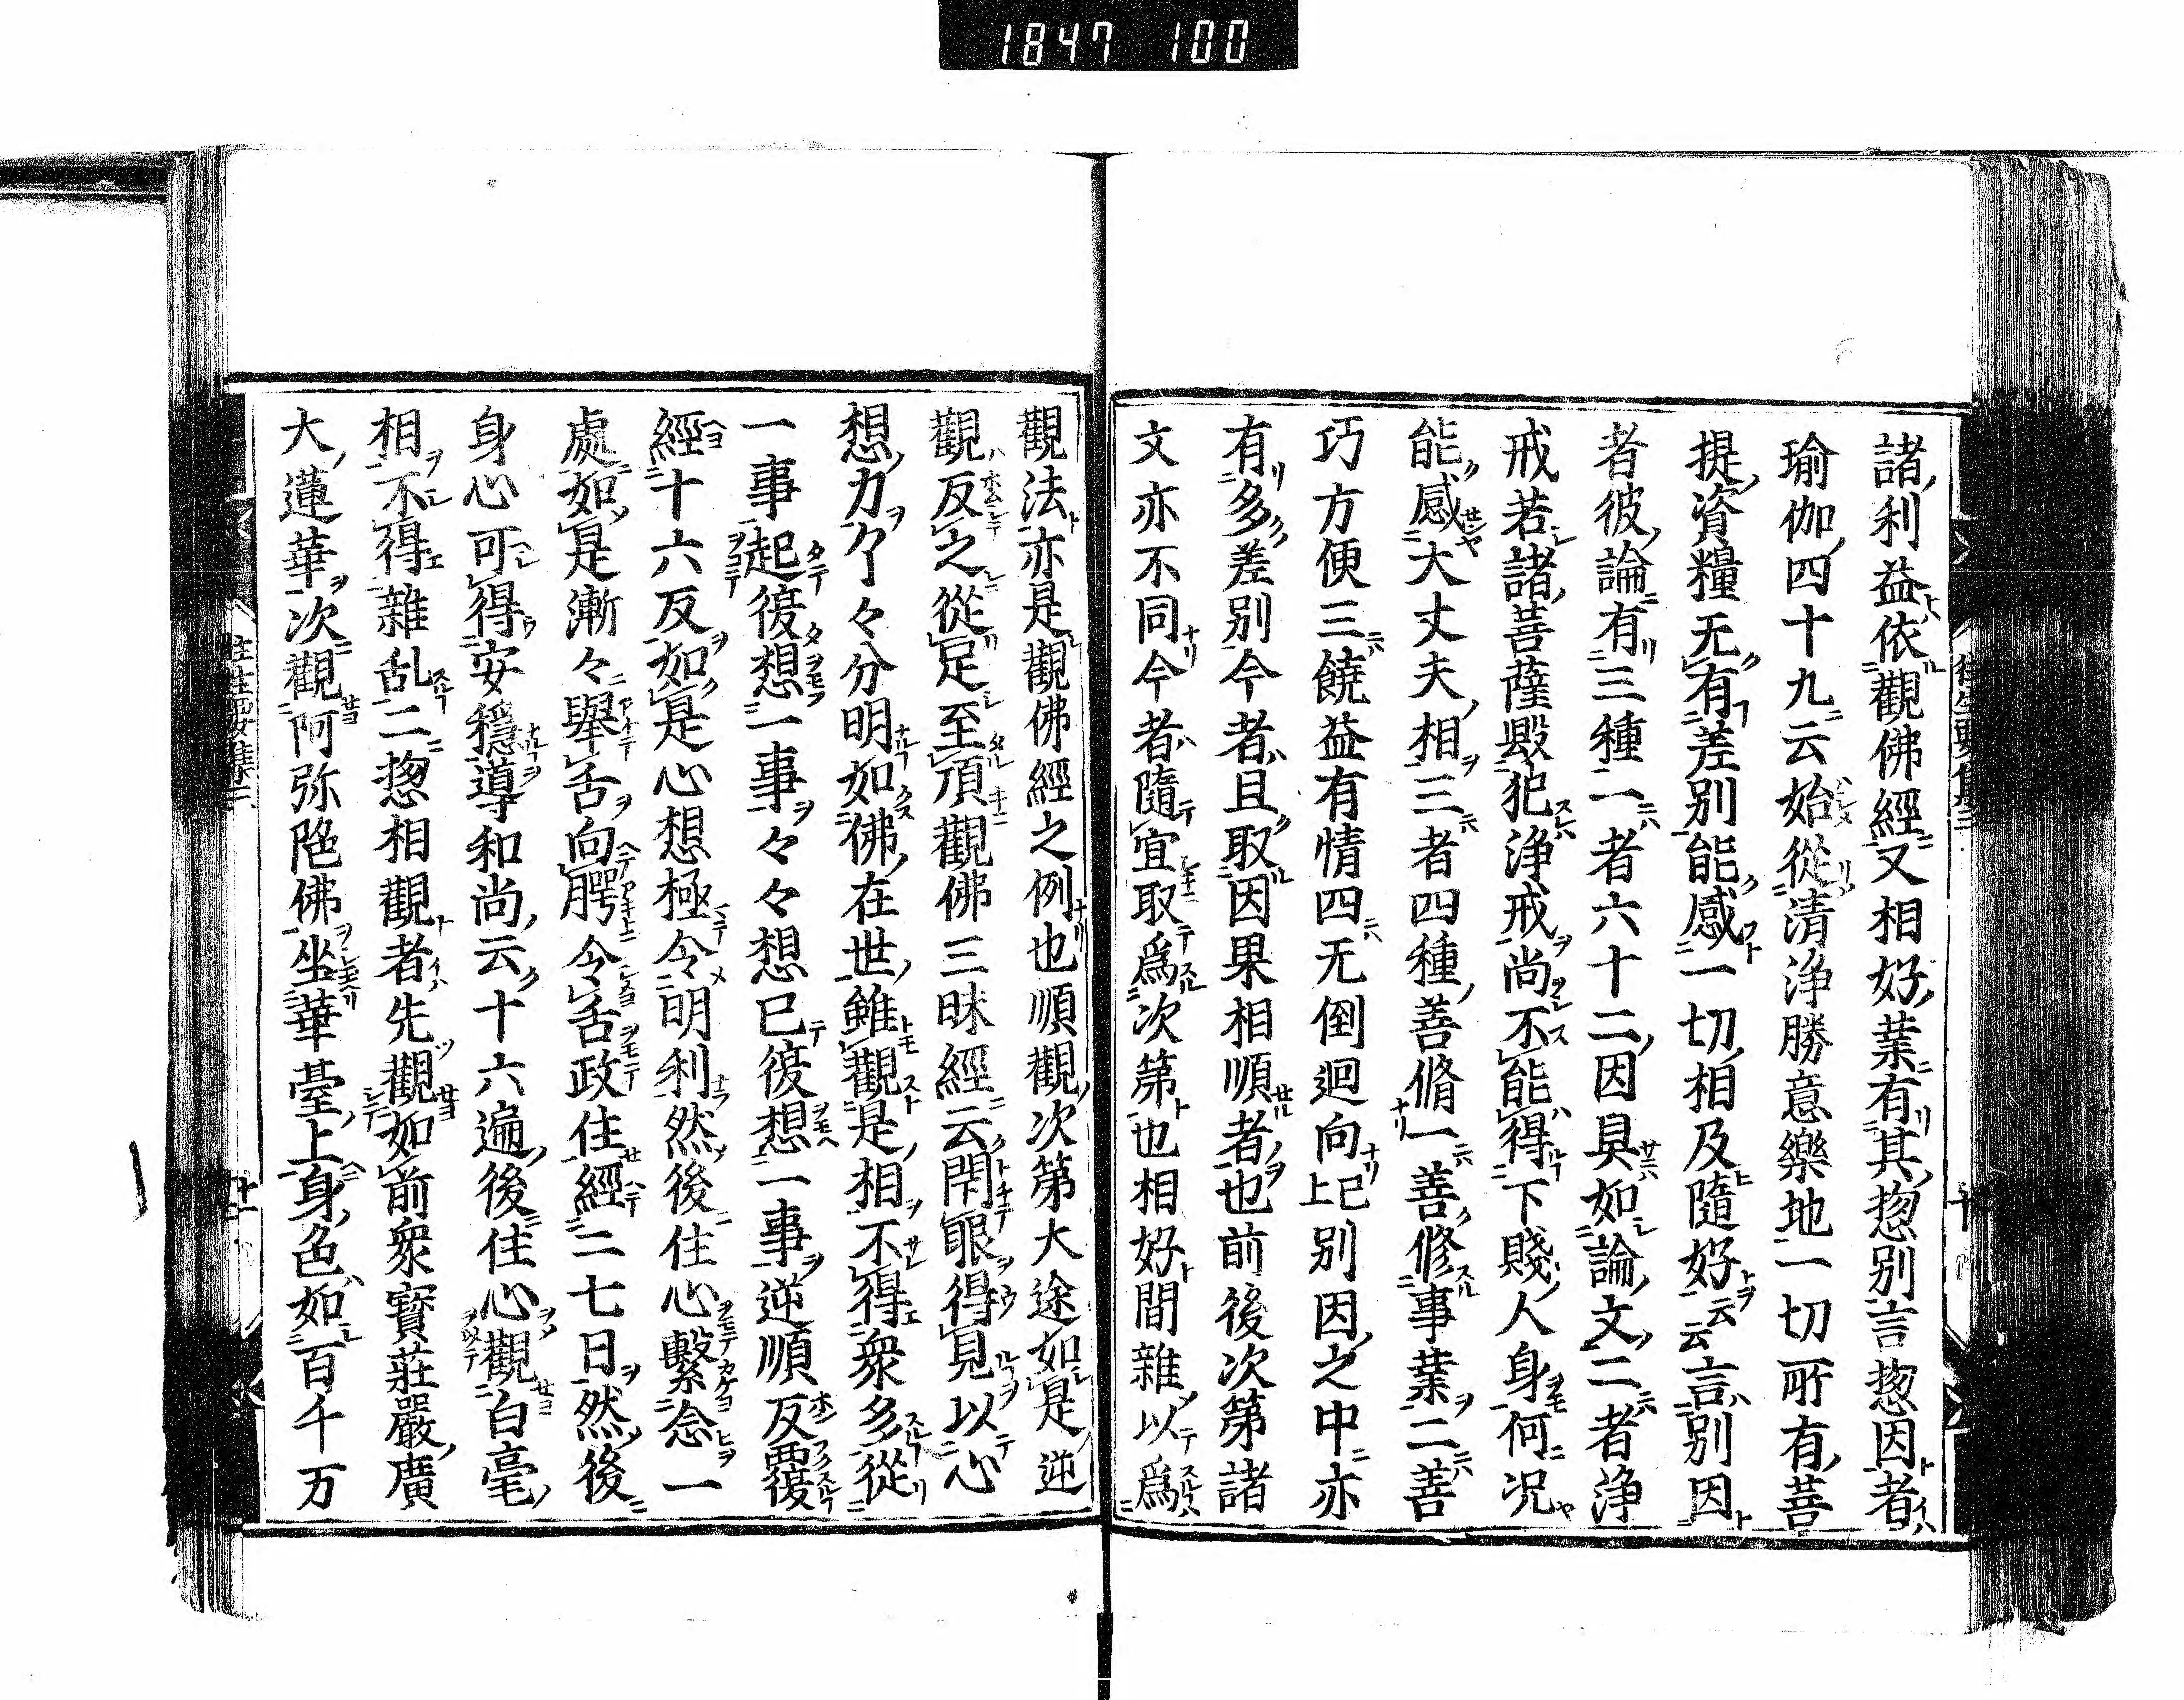 1847 100
諸利益依觀佛經又相好業有其惣別言惣因者
瑜伽四十九云始從清浄勝意樂地一切所有菩
提資糧无有差別能感一切相及隨好云云言別因
者彼論有三種一者六十二因具如論文二者浄
戒若諸菩薩毀犯浄戒尚不能得下賤人身何况
能感大丈夫相三者四種善脩一善修事業二善
巧方便三饒益有情四无倒迴向已上別因之中亦
有多差別今者且取因果相順者也前後次第諸
文亦不同今者隨宜取爲次第也相好間雜以爲
觀法亦是觀佛經之例也順觀次第大途如是逆
觀反之從足至頂觀佛三昧經云閇眼得見以心
想力了々分明如佛在世雖觀是相不得衆多從
一事起復想一事々々想已復想一事逆順反覆
經十六反如是心想極令明利然後住心繫念一
處如是漸々舉舌向腭令舌政住經二七日然後
身心可得安穩導和尚云十六遍後住心觀白毫
相不得雜乱二惣相觀者先觀如前衆寳莊嚴廣
大蓮華次觀阿弥陁佛坐華臺上身色如百千万